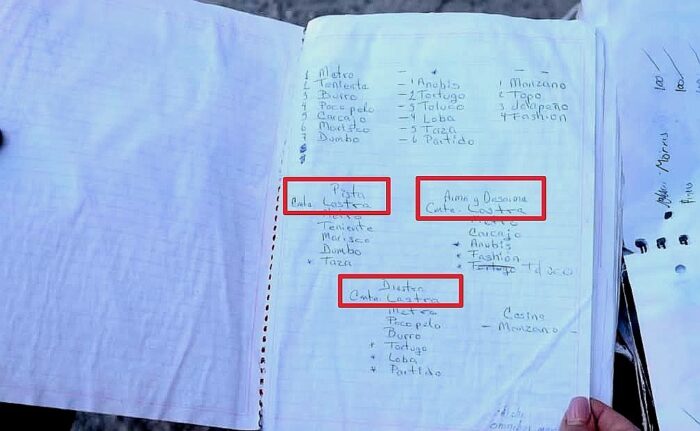 1 Metro
2 Teniente
3 Burro
4 Pocopelo
5 Carcajo
6 Marisco
7 Dumbo
8
9
- 1 Anubis
- 2 Tortugo
- 3 Toluco
- 4 Loba
- 5 Taza
- 6 Partido
1 Manzano
2 Topo
3 Jalapeño
4 Fashion
Pista
Cmte. Lastra
Metro
Teniente
Marisco
Dumbo
* Taza
Cmte. Lastra
Metro
Carcajo
* Anubis
* Fashion
* Tortugo
Diestra
Cmte. Lastra
Metro
Pocopelo
Burro
* Tortugo
* Loba
* Partido
Cosina
- Manzano -
100/
100/
Morris